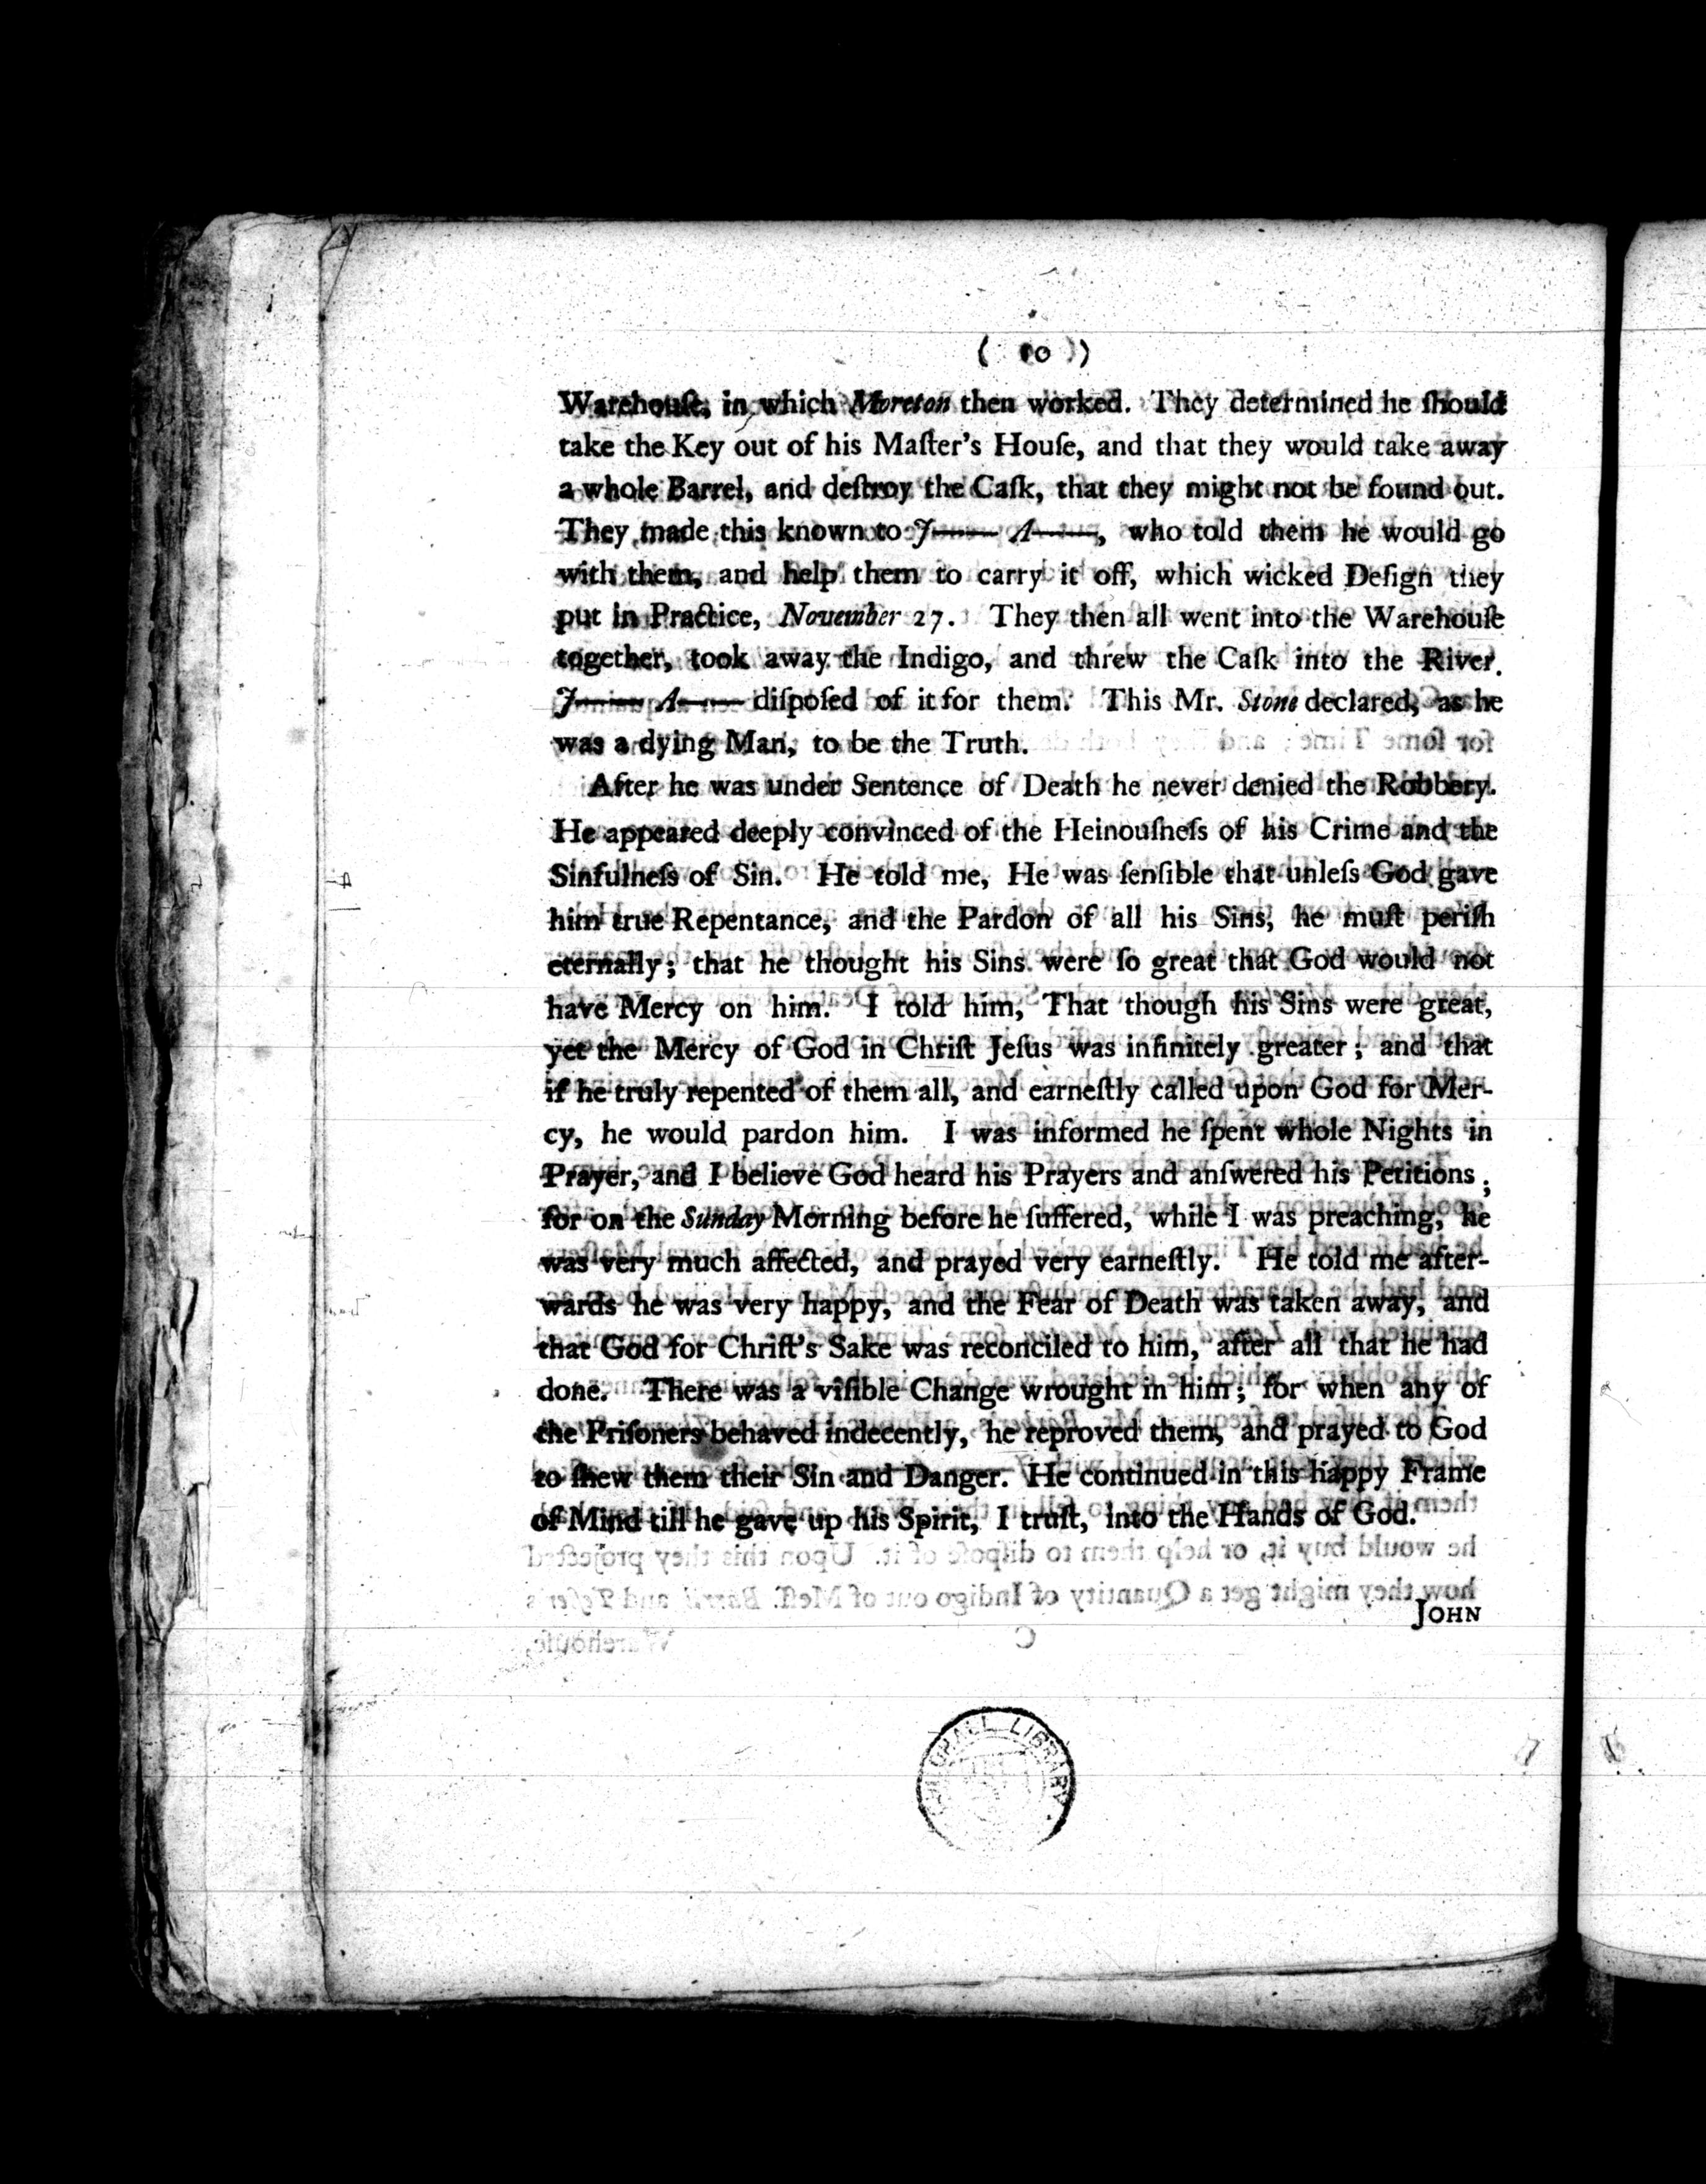 ( 10 )
Warehouſe, in which Moreton then worked. They determined he ſhould
take the Key out of his Maſter's Houſe, and that they would take away
a whole Barrel, and deſtroy the Caſk, that they might not be found out.
They made this known to J—— A——, who told them he would go
with them, and help them to carry it off, which wicked Deſign they
put in Practice, November 27. They then all went into the Warehouſe
together, took away the Indigo, and threw the Caſk into the River.
J—— A—— diſpoſed of it for them. This Mr. Stone declared, as he
was a dying Man, to be the Truth.
After he was under Sentence of Death he never denied the Robbery.
He appeared deeply convinced of the Heinouſneſs of his Crime and the
Sinfulneſs of Sin. He told me, He was ſenſible that unleſs God gave
him true Repentance, and the Pardon of all his Sins, he muſt periſh
eternally; that he thought his Sins were ſo great that God would not
have Mercy on him. I told him, That though his Sins were great,
yet the Mercy of God in Chriſt Jeſus was infinitely greater; and that
if he truly repented of them all, and earneſtly called upon God for Mer-
cy, he would pardon him. I was informed he ſpent whole Nights in
Prayer, and I believe God heard his Prayers and anſwered his Petitions;
for on the Sunday Morning before he ſuffered, while I was preaching, he
was very much affected, and prayed very earneſtly. He told me after-
wards he was very happy, and the Fear of Death was taken away, and
that God for Chriſt's Sake was reconciled to him, after all that he had
done. There was a viſible Change wrought in him; for when any of
the Priſoners behaved indecently, he reproved them, and prayed to God
to ſhew them their Sin and Danger. He continued in this happy Frame
of Mind till he gave up his Spirit, I truſt, into the Hands of God.
JOHN
LIBRARY